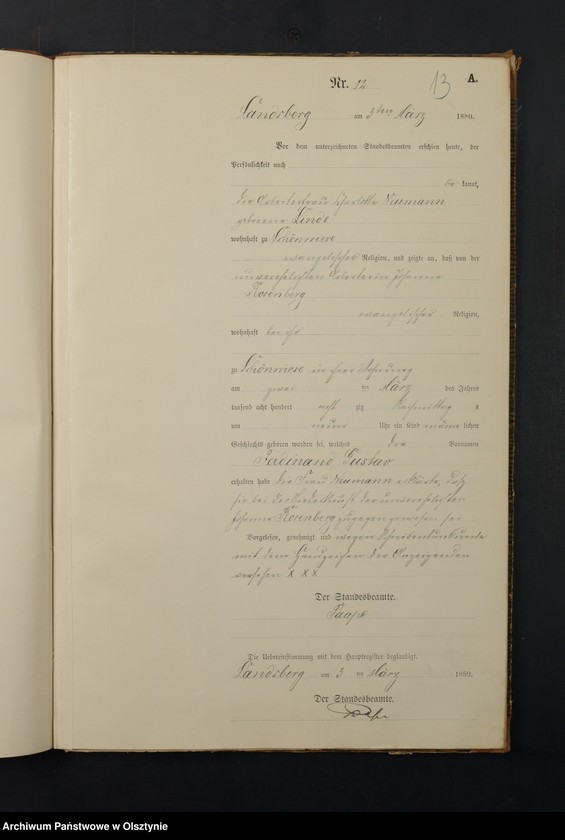 Nr. 12 13 A.
Landsberg am 3ten März 1880.
Vor dem unterzeichneten Standesbeamten erschien heute, der
Persönlichkeit nach
be kannt,
die Charlotte Neumann
geborene Linde
wohnhaft zu Schönwiese
evangelischer Religion, und zeigte an, daß von der
unverehelichten Johanna
Rosenberg
evangelischer Religion,
wohnhaft bei ihr
zu Schönwiese in ihrer Wohnung
am zwei ten März des Jahres
tausend acht hundert acht zig Nachmittag s
um neun Uhr ein Kind männ lichen
Geschlechts geboren worden sei, welches die Vornamen
Ferdinand, Gustav
erhalten habe die Frau Neumann erklärte, daß
sie bei der Niederkunft der unverehelichten
Johanna Rosenberg zugegen gewesen sei
Vorgelesen, genehmigt und wegen Schreibensunkunde
mit dem Handzeichen der Anzeigenden
versehen x x x
Der Standesbeamte.
Die Uebereinstimmung mit dem Hauptregister beglaubigt.
Landsberg am 3 ten März 1880.
Der Standesbeamte.
Archiwum Państwowe w Olsztynie